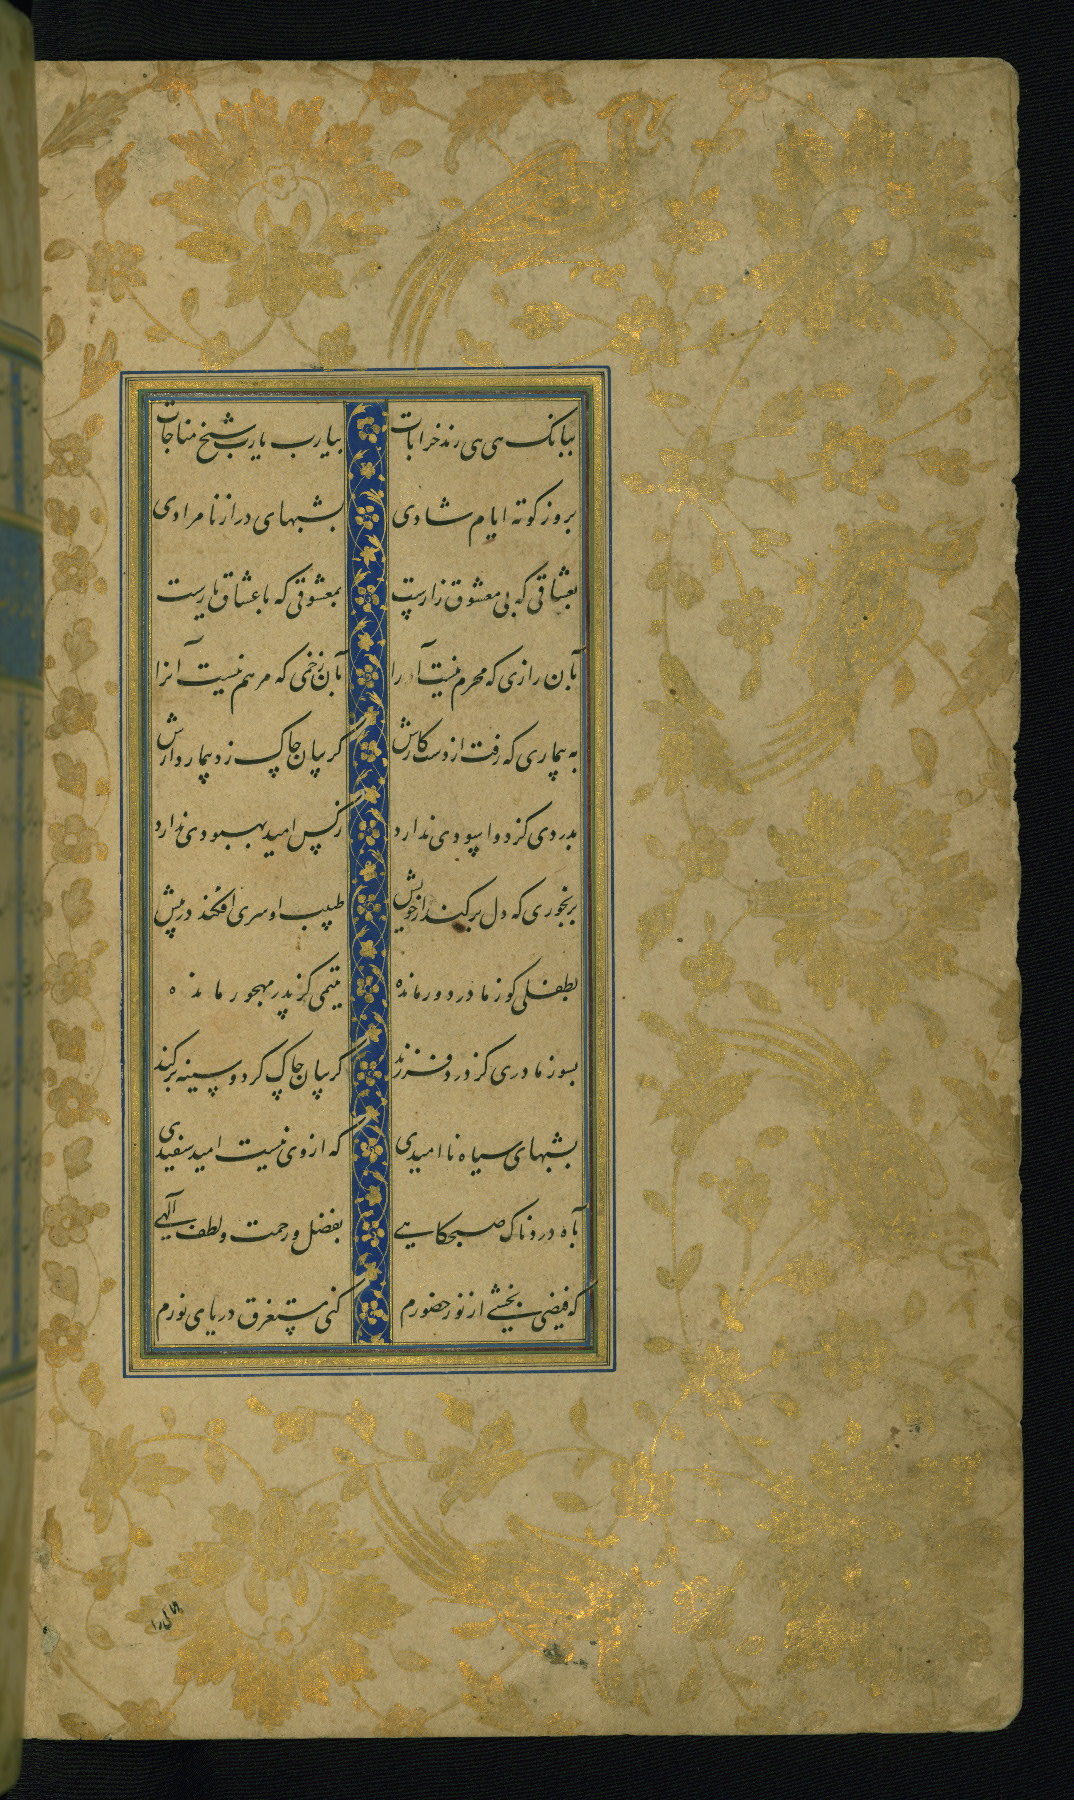 ببانک هی هی رند خرابات بیارب یارب شیخ مناجات
بروز کوته ایام شادی بشبهای دراز نامرادی
بعشاقی که بی معشوق زارست بمعشوقی که با عشاق یارست
بآن رازی که محرم نیست آنرا بآن زخمی که مرهم نیست آنرا
به بیماری که رفت از دست کارش کریبان چاک زد بیماردارش
بدردی کز دوا سودی ندارد زکس امید بهبودی ندارد
برنجوری که دل برکند از خویش طبیب او سری افکند در پیش
بطفلی کو ز مادر دور مانده یتیمی کز پدر مهجور مانده
بسوز مادری کز درد فرزند کریبان چاک کرد و سینه برکند
بشبهای سیاه ناامیدی که از وی نیست امید سفیدی
بآه دردناک صبحکاهی بفضل و رحمت و لطف آلهی
که فیضی بخشی از نور حضورم کنی مستغرق دریای نورم